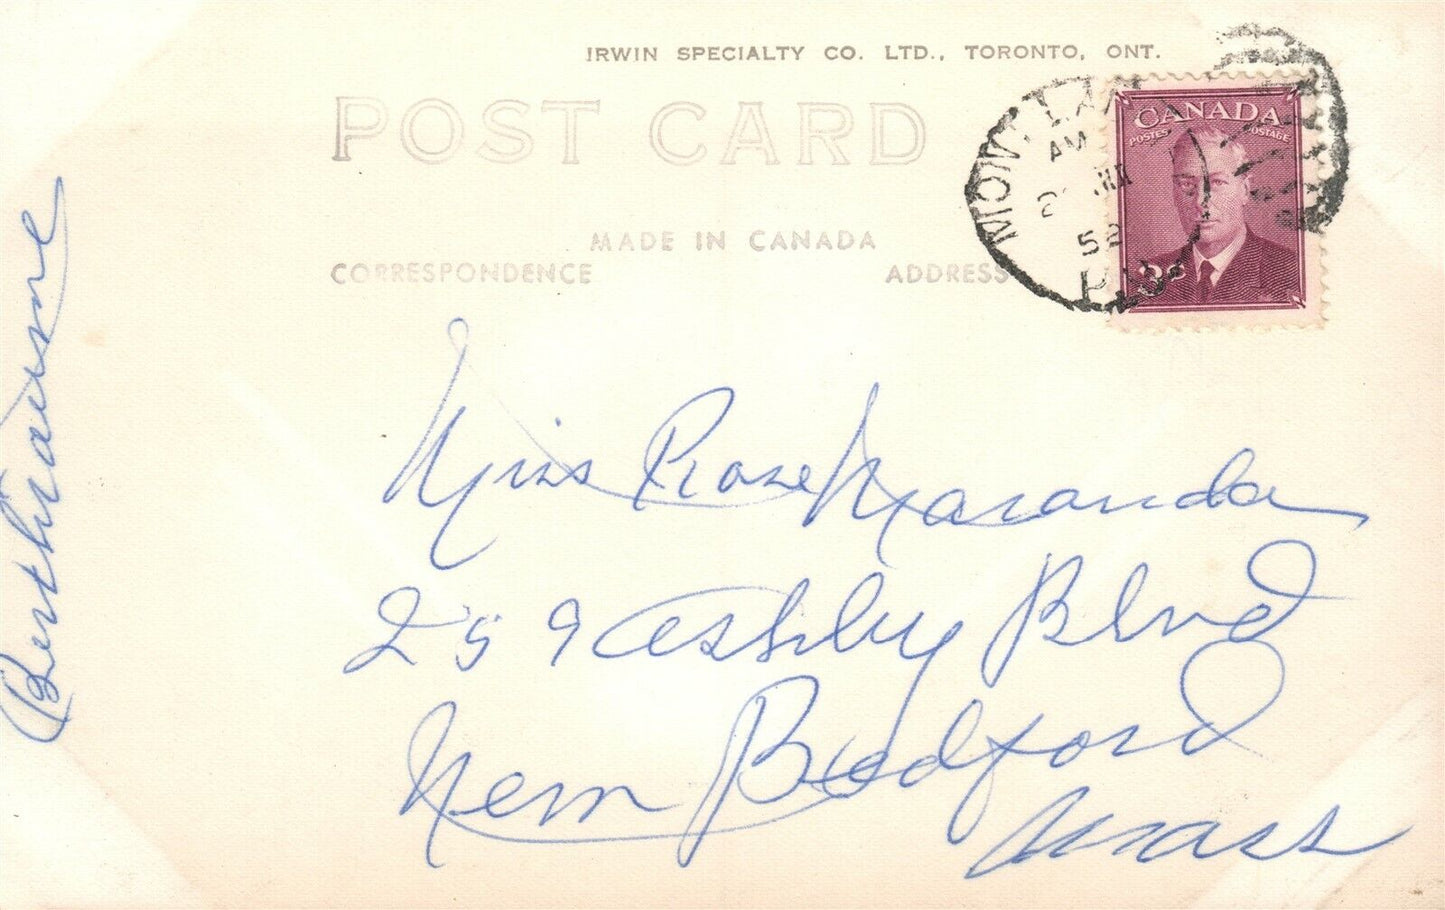 IRWIN SPECIALTY CO. LTD., TORONTO, ONT.
POST CARD
MADE IN CANADA
CORRESPONDENCE
ADDRESS
CANADA
POSTES POSTAGE
3¢
AM
52
Miss Rose Maranda
259 Ashby Blvd
New Bedford
Mass